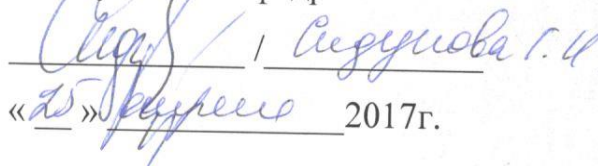 / Сидунова Г.И
«25» апреля 2017г.